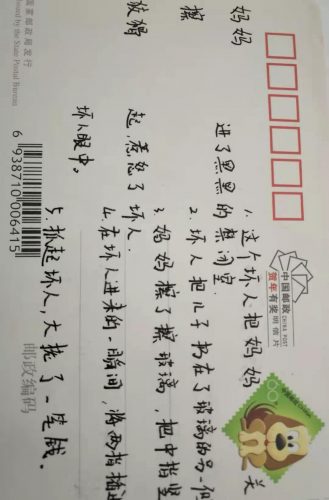 中国邮政
CHINA POST
贺年有奖明信片
妈妈
擦
1. 这个坏人把妈妈关
进了黑黑的禁闭室.
2. 坏人把儿子扔在了玻璃的另一侧
3. 妈妈擦了擦玻璃，把中指竖
起，惹怒了坏人.
4. 在坏人进来的一瞬间，将两指插进
坏人眼中。
5. 抓起坏人，大捞了一笔钱。
邮政编码
6 938710 006415
国家邮政局发行
by the State Postal Bureau